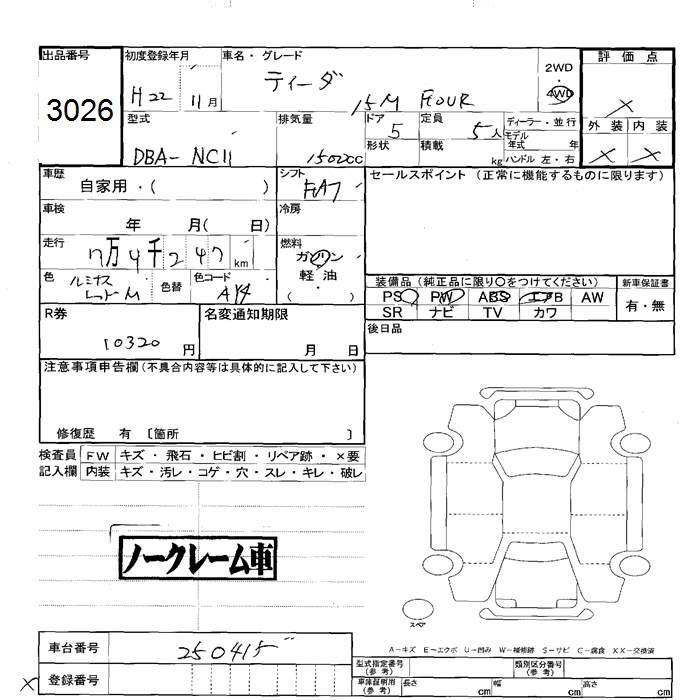 出品番号 初度登録年月 車名・グレード 2WD 評価点
3026 H22 11月 ティーダ 4WD ×
15M FOUR 外装 内装
型式 排気量 ドア 5 定員 5人 ディーラー・並行 × ×
モデル年式 年
DBA- NC11 1500cc 形状 積載 kg ハンドル 左・右
車歴 自家用・( ) シフト FAT セールスポイント (正常に機能するものに限ります)
車検 年 月( 日) 冷房
走行 7万4千247km 燃料 ガソリン
軽・油
( )
色 ルミナスレッドM 色替 色コード AY4 装備品(純正品に限り○をつけてください) 新車保証書
PS PW ABS エアB AW 有・無
R券 名変通知期限 SR ナビ TV カワ
10320円 月 日 後日品
注意事項申告欄(不具合内容等は具体的に記入して下さい)
修復歴 有 〔箇所 〕
検査員 FW キズ・飛石・ヒビ割・リペア跡・×要
記入欄 内装 キズ・汚レ・コゲ・穴・スレ・キレ・破レ
ノークレーム車
スペア
A−キズ E−エクボ U−凹み W−補修跡 S−サビ C−腐食 XX−交換済
車台番号 250415
型式指定番号(参考) 類別区分番号(参考)
× 登録番号 車庫証明用(参考) 長さ cm 幅 cm 高さ cm